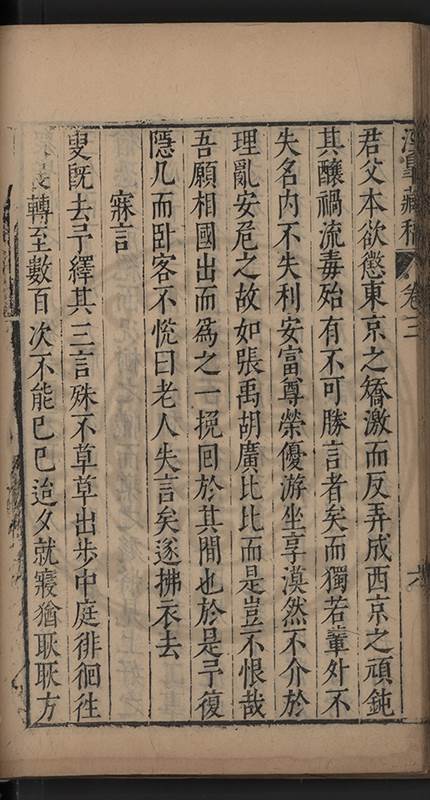 涇臯藏稿 卷三
君父本欲懲東京之矯激而反弄成西京之頑鈍
其釀禍流毒殆有不可勝言者矣而獨若輩外不
失名内不失利安富尊榮優游坐享漠然不介於
理亂安危之故如張禹胡廣比比而是豈不恨哉
吾願相國出而爲之一挽回於其間也於是予復
隱几而卧客不悅曰老人失言矣遂拂衣去
寐言
叟旣去予繹其三言殊不草草出步中庭徘徊徃
轉至數百次不能已巳迨夕就寢猶耿耿方